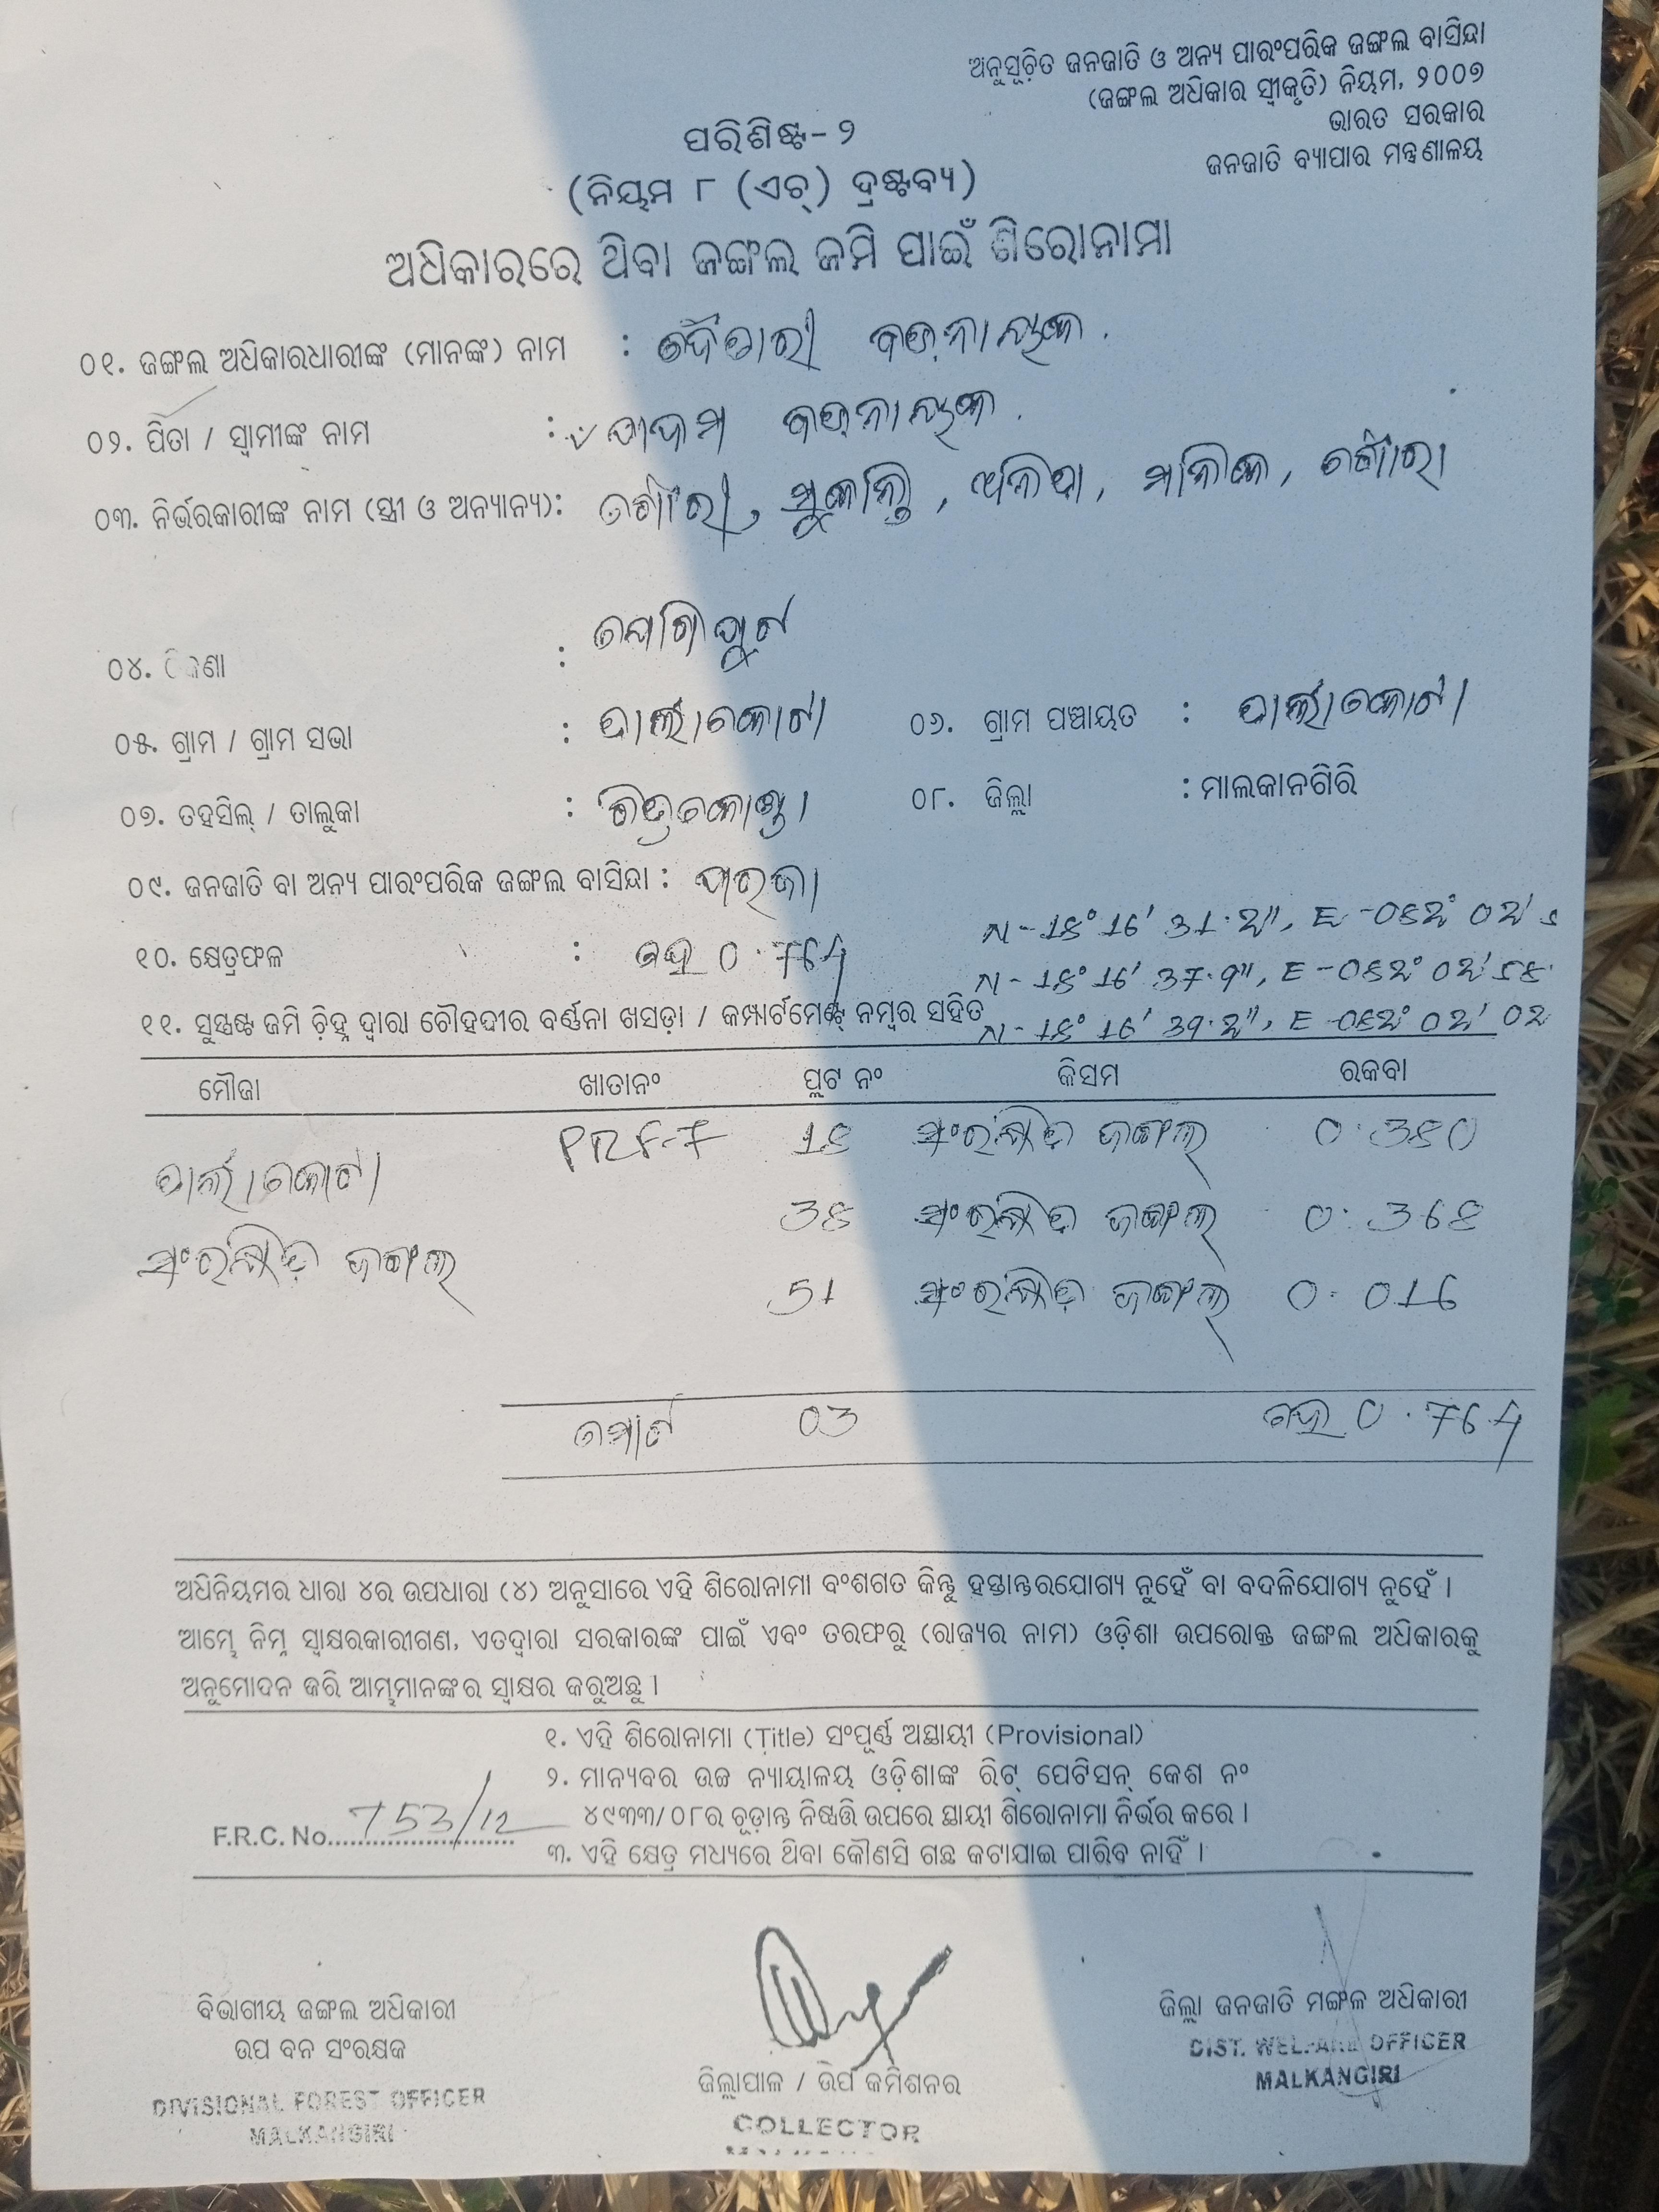 ଅନୁସୂଚିତ ଜନଜାତି ଓ ଅନ୍ୟ ପାରଂପରିକ ଜଙ୍ଗଲ ବାସିନ୍ଦା
(ଜଙ୍ଗଲ ଅଧିକାର ସ୍ୱୀକୃତି) ନିୟମ, ୨୦୦୭
ଭାରତ ସରକାର
ଜନଜାତି ବ୍ୟାପାର ମନ୍ତ୍ରଣାଳୟ
ପରିଶିଷ୍ଟ-୨
(ନିୟମ ୮ (ଏଚ୍) ଦ୍ରଷ୍ଟବ୍ୟ)
ଅଧିକାରରେ ଥିବା ଜଙ୍ଗଲ ଜମି ପାଇଁ ଶିରୋନାମା
୦୧. ଜଙ୍ଗଲ ଅଧିକାରଧାରୀଙ୍କ (ମାନଙ୍କ) ନାମ : ଦୈତାରୀ ବଡ଼ନାୟକ.
୦୨. ପିତା / ସ୍ୱାମୀଙ୍କ ନାମ : ବଡ଼ନାୟକ.
୦୩. ନିର୍ଭରକାରୀଙ୍କ ନାମ (ସ୍ତ୍ରୀ ଓ ଅନ୍ୟାନ୍ୟ): ଗୌରୀ, ସୁକାନ୍ତି,
୦୪. :
୦୫. ଗ୍ରାମ / ଗ୍ରାମ ସଭା : ୦୬. ଗ୍ରାମ ପଞ୍ଚାୟତ :
୦୭. ତହସିଲ୍ / ତାଲୁକା : ଚିତ୍ରକୋଣ୍ଡା ୦୮. ଜିଲ୍ଲା : ମାଲକାନଗିରି
୦୯. ଜନଜାତି ବା ଅନ୍ୟ ପାରଂପରିକ ଜଙ୍ଗଲ ବାସିନ୍ଦା : ପରଜା
୧୦. କ୍ଷେତ୍ରଫଳ : ହେ 0.764
୧୧. ସୁସ୍ପଷ୍ଟ ଜମି ଚିହ୍ନ ଦ୍ୱାରା ଚୌହଦ୍ଦୀର ବର୍ଣ୍ଣନା ଖସଡ଼ା / କମ୍ପାର୍ଟମେଣ୍ଟ୍ ନମ୍ବର ସହିତ
ମୌଜା ଖାତାନଂ ପ୍ଲଟ ନଂ କିସମ ରକବା
PRF-7 18 ସଂରକ୍ଷିତ ଜଙ୍ଗଲ 0.380
38 ସଂରକ୍ଷିତ ଜଙ୍ଗଲ 0.368
ସଂରକ୍ଷିତ ଜଙ୍ଗଲ
51 ସଂରକ୍ଷିତ ଜଙ୍ଗଲ 0.016
ମୋଟ 03 ହେ 0.764
ଅଧିନିୟମର ଧାରା ୪ର ଉପଧାରା (୪) ଅନୁସାରେ ଏହି ଶିରୋନାମା ବଂଶଗତ କିନ୍ତୁ ହସ୍ତାନ୍ତରଯୋଗ୍ୟ ନୁହେଁ ବା ବଦଳିଯୋଗ୍ୟ ନୁହେଁ ।
ଆମ୍ଭେ ନିମ୍ନ ସ୍ୱାକ୍ଷରକାରୀଗଣ, ଏତଦ୍ୱାରା ସରକାରଙ୍କ ପାଇଁ ଏବଂ ତରଫରୁ (ରାଜ୍ୟର ନାମ) ଓଡ଼ିଶା ଉପରୋକ୍ତ ଜଙ୍ଗଲ ଅଧିକାରକୁ
ଅନୁମୋଦନ କରି ଆମ୍ଭମାନଙ୍କର ସ୍ୱାକ୍ଷର କରୁଅଛୁ ।
୧. ଏହି ଶିରୋନାମା (Title) ସଂପୂର୍ଣ୍ଣ ଅସ୍ଥାୟୀ (Provisional)
୨. ମାନ୍ୟବର ଉଚ୍ଚ ନ୍ୟାୟାଳୟ ଓଡ଼ିଶାଙ୍କ ରିଟ୍ ପେଟିସନ୍ କେଶ ନଂ
୪୯୩୩/୦୮ର ଚୂଡ଼ାନ୍ତ ନିଷ୍ପତ୍ତି ଉପରେ ସ୍ଥାୟୀ ଶିରୋନାମା ନିର୍ଭର କରେ ।
F.R.C. No. 753/12
୩. ଏହି କ୍ଷେତ୍ର ମଧ୍ୟରେ ଥିବା କୌଣସି ଗଛ କଟାଯାଇ ପାରିବ ନାହିଁ ।
ବିଭାଗୀୟ ଜଙ୍ଗଲ ଅଧିକାରୀ
ଉପ ବନ ସଂରକ୍ଷକ
DIVISIONAL FOREST OFFICER
MALKANGIRI
ଜିଲ୍ଲାପାଳ / ଉପ କମିଶନର
COLLECTOR
ଜିଲ୍ଲା ଜନଜାତି ମଙ୍ଗଳ ଅଧିକାରୀ
DIST. WELFARE OFFICER
MALKANGIRI